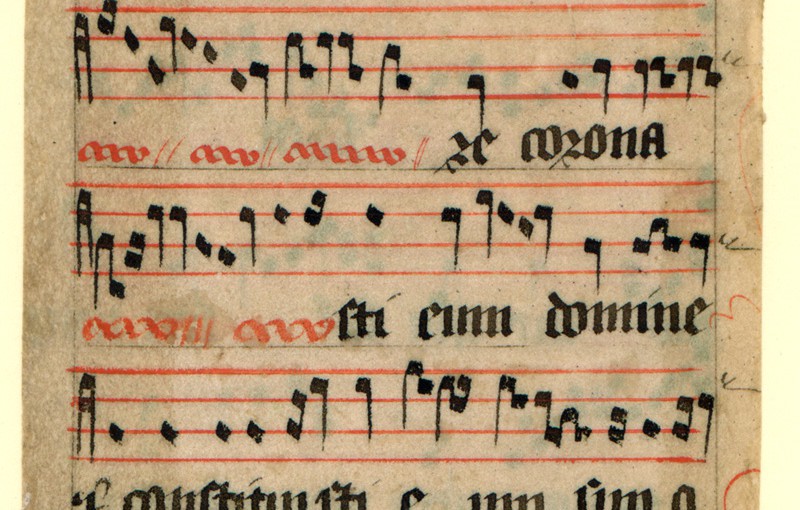 re corona
sti eum domine
et constituisti e um sup o